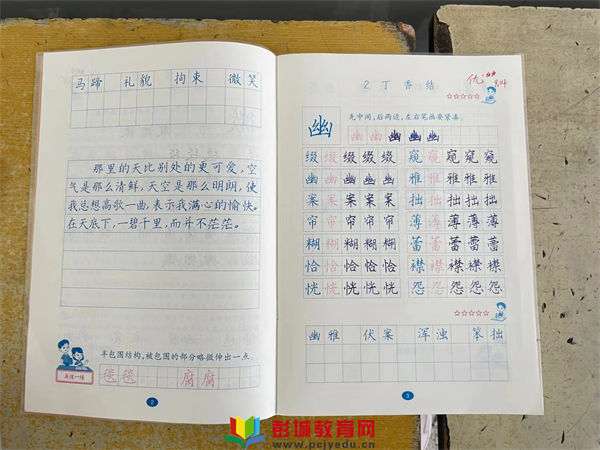 马蹄 礼貌 拘束 微笑
那里的天比别处的更可爱，空
气是那么清鲜，天空是那么明朗，使
我总想高歌一曲，表示我满心的愉快。
在天底下，一碧千里，而并不茫茫。
半包围结构，被包围的部分略微伸出一点。
再练一练
毯 毯 腐 腐
2
2 丁香结
优
幽
先中间，后两边，左右笔画要紧凑。
幽 幽 幽 幽 幽 幽
缀 缀 缀 缀 缀 窥 窥 窥 窥 窥
幽 幽 幽 幽 幽 雅 雅 雅 雅 雅
案 案 案 案 案 拙 拙 拙 拙 拙
帘 帘 帘 帘 帘 薄 薄 薄 薄 薄
糊 糊 糊 糊 糊 蕾 蕾 蕾 蕾 蕾
恰 恰 恰 恰 恰 襟 襟 襟 襟 襟
恍 恍 恍 恍 恍 怨 怨 怨 怨 怨
幽雅 伏案 浑浊 笨拙
3
彭城教育网
www.pcjyedu.cn